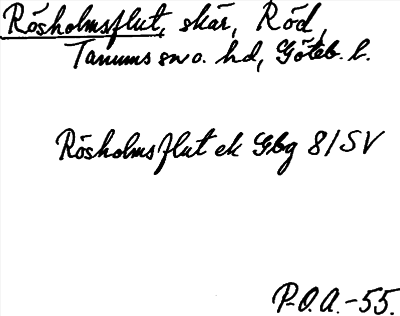 Rösholmsflut, skär, Röd,
Tanums sn o. hd, Göteb. l.
Rösholmsflut ek Gbg 8/SV
P-O.A.-55.